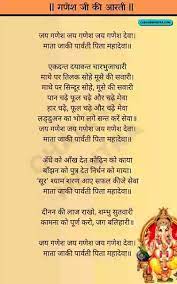 ॥ गणेश जी की आरती ॥
जय गणेश जय गणेश जय गणेश देवा।
माता जाकी पार्वती पिता महादेवा॥
एकदन्त दयावन्त चारभुजाधारी
माथे पर तिलक सोहे मूसे की सवारी।
माथे पर सिन्दूर सोहे, मूसे की सवारी
पान चढ़े फूल चढ़े और चढ़े मेवा
हार चढ़े, फूल चढ़े और चढ़े मेवा
लड्डुअन का भोग लगे सन्त करें सेवा॥
जय गणेश जय गणेश जय गणेश देवा।
माता जाकी पार्वती पिता महादेवा॥
अँधे को आँख देत कोढ़िन को काया
बाँझन को पुत्र देत निर्धन को माया।
'सूर' श्याम शरण आए सफल कीजे सेवा
माता जाकी पार्वती पिता महादेवा॥
दीनन की लाज राखो, शम्भु सुतवारी
कामना को पूर्ण करो, जग बलिहारी॥
जय गणेश जय गणेश जय गणेश देवा।
माता जाकी पार्वती पिता महादेवा॥